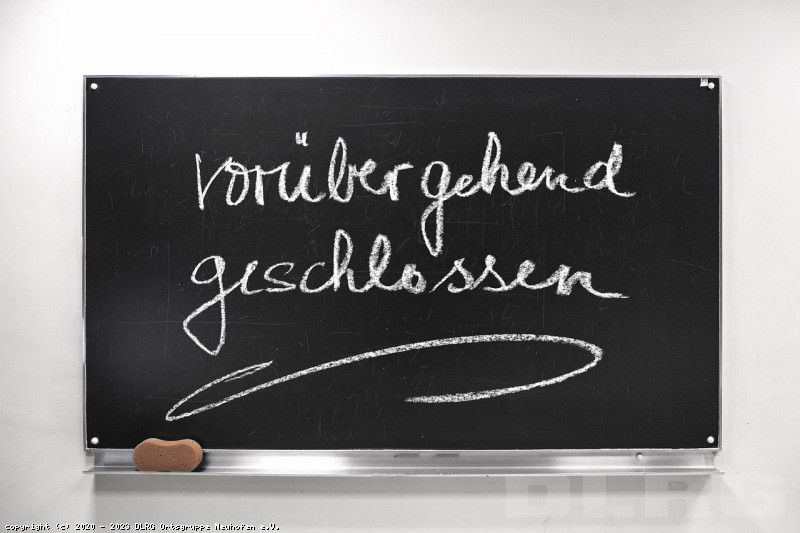 vorübergehend
geschlossen
DLRG
copyright (c) 2020 - 2023 DLRG Ortsgruppe Neuhofen e.V.